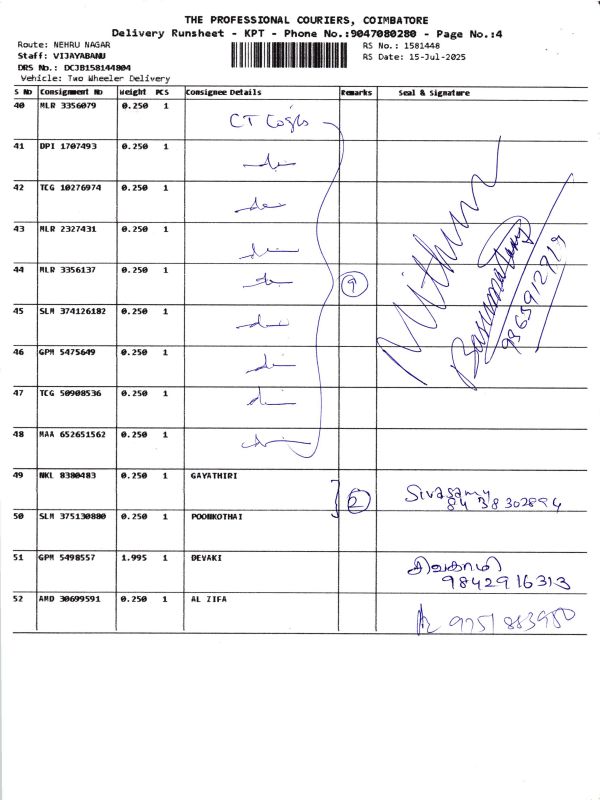 THE PROFESSIONAL COURIERS, COIMBATORE
Delivery Runsheet - KPT - Phone No.:9047080280 - Page No.:4
Route: NEHRU NAGAR
Staff: VIJAYABANU
DRS No.: DCJB158144804
Vehicle: Two Wheeler Delivery
RS No.: 1581448
RS Date: 15-Jul-2025
S NO Consignment No Weight PCS Consignee Details Remarks Seal & Signature
40 MLR 3356079 0.250 1 CT
41 DPI 1707493 0.250 1
42 TCG 10276974 0.250 1
43 MLR 2327431 0.250 1
44 MLR 3356137 0.250 1 9
45 SLM 374126182 0.250 1
46 GPM 5475649 0.250 1
47 TCG 50908536 0.250 1
48 MAA 652651562 0.250 1
Mithun
9363912919
49 NKL 8380483 0.250 1 GAYATHIRI 2 Sivasamy
8438302894
50 SLM 375130880 0.250 1 POONKOTHAI
51 GPM 5498557 1.995 1 DEVAKI சிவகாமி
9842916313
52 AMD 30699591 0.250 1 AL ZIFA 9751883980